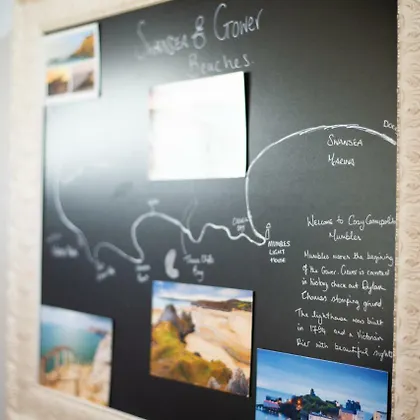 Swansea & Gower
Beaches.
Doc
Swansea
Marina
Mumbles
Light
House
Three Cliffs
Bay
Welcome to Cosy
Mumbles
Mumbles marks the beginning
of the Gower. Gower is
in history check out Dylan
Thomas stomping ground
The lighthouse was built
in 1794 and a Victorian
Pier with beautiful sights